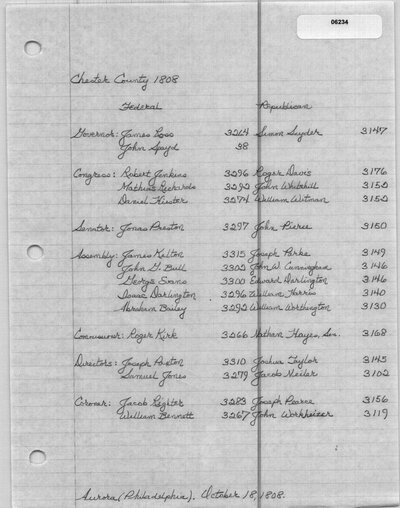 06234
Chester County 1808
Federal Republican
Governor: James Ross 3264 Simon Snyder 3147
John Spayd 38
Congress: Robert Jenkins 3296 Roger Davis 3176
Mathias Richards 3292 John Whitehill 3152
Daniel Hiester 3274 William Witman 3152
Senator: Jonas Preston 3297 John Pierce 3150
Assembly: James Kelton 3315 Joseph Parke 3149
John G. Bull 3302 John W. Cunningham 3146
George Evans 3300 Edward Darlington 3146
Isaac Darlington 3296 William Harris 3140
Abraham Bailey 3292 William Worthington 3130
Commissioner: Roger Kirk 3266 Nathan Hayes, Sen. 3168
Directors: Joseph Preston 3310 Joshua Taylor 3145
Samuel Jones 3279 Jacob Neiler 3102
Coroner: Jacob Righter 3283 Joseph Pearce 3156
William Bennett 3267 John Workheizer 3119
Aurora (Philadelphia). October 18, 1808.